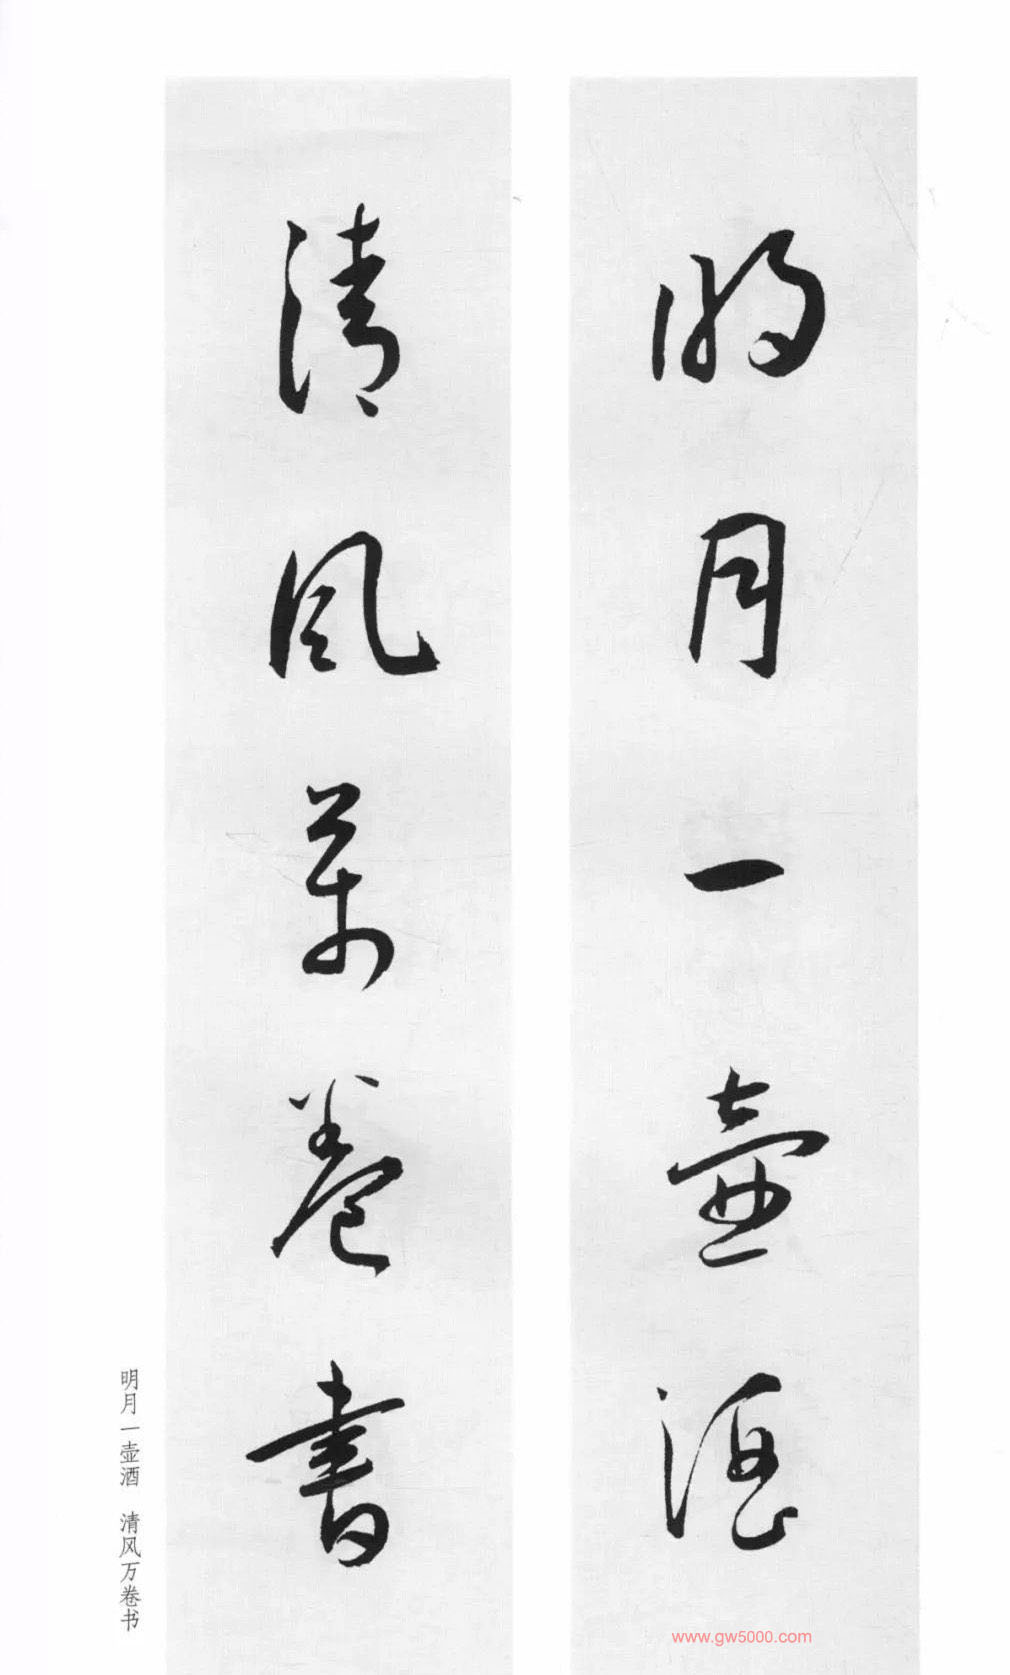 明月一壶酒
清風萬卷書
明月一壶酒 清风万卷书
www.gw5000.com